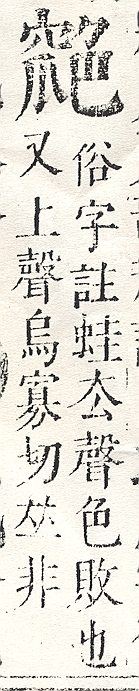 俗字註蛙厺聲色敗也
又上聲烏寡切𠀤非